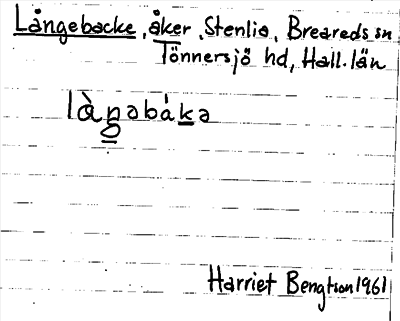 Långebacke, åker, Stenlia, Breareds sn
Tönnersjö hd, Hall. län
là̀ŋəbákə
Harriet Bengtson 1961